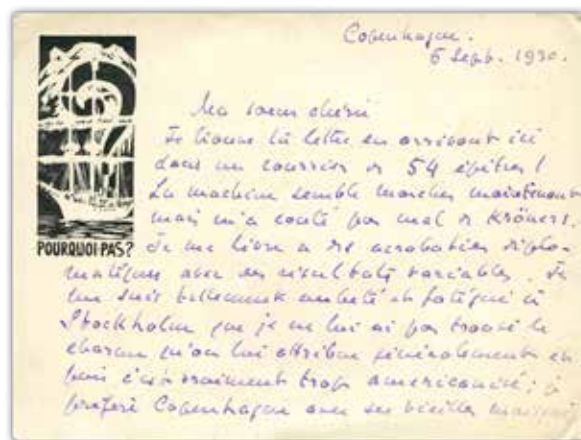 Copenhague.
6 Sept. 1930.
Ma soeur chérie
Je trouve ta lettre en arrivant ici
dans un courrier de 54 épîtres !
La machine semble marcher maintenant
mais m'a couté pas mal de Kröners.
POURQUOI PAS?
Je me livre a des acrobaties diplo-
matiques avec des résultats variables. Je
me suis tellement embeté et fatigué à
Stockholm que je ne lui ai pas trouvé le
charme qu'on lui attribue généralement et
puis c'est vraiment trop americanisé ; je
préfère Copenhague avec ses vieilles maisons